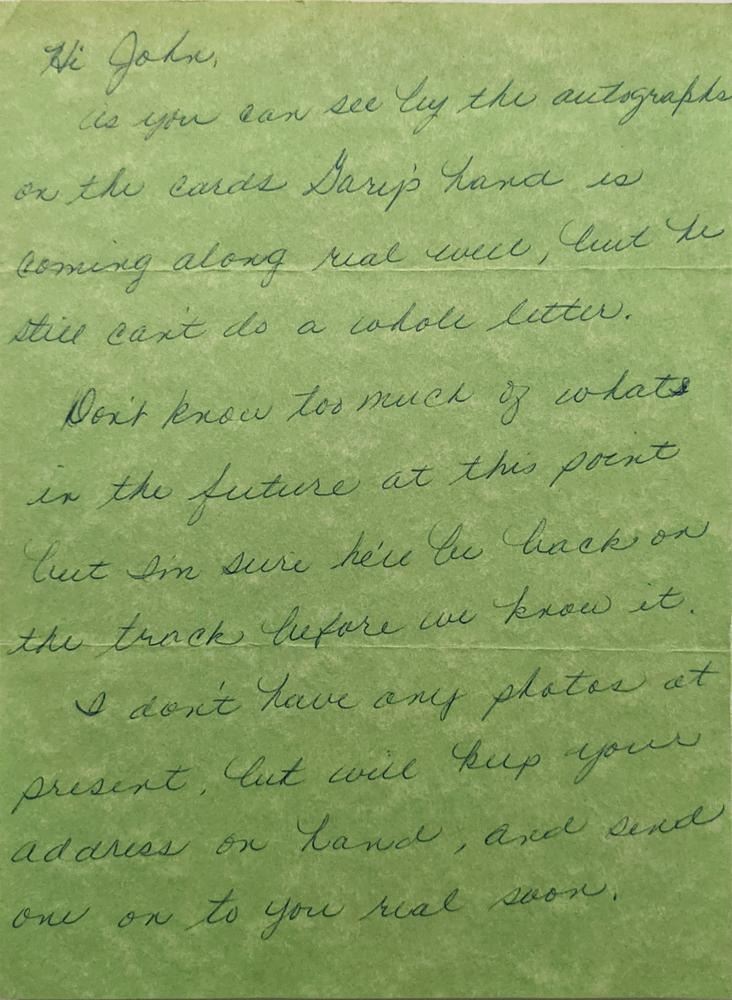 Hi John,
as you can see by the autographs
on the cards Gary's hand is
coming along real well, but he
still can't do a whole letter.
Don't know too much of whats
in the future at this point
but I'm sure he'll be back on
the track before we know it.
I don't have any photos at
present, but will keep your
address on hand, and send
one on to you real soon.